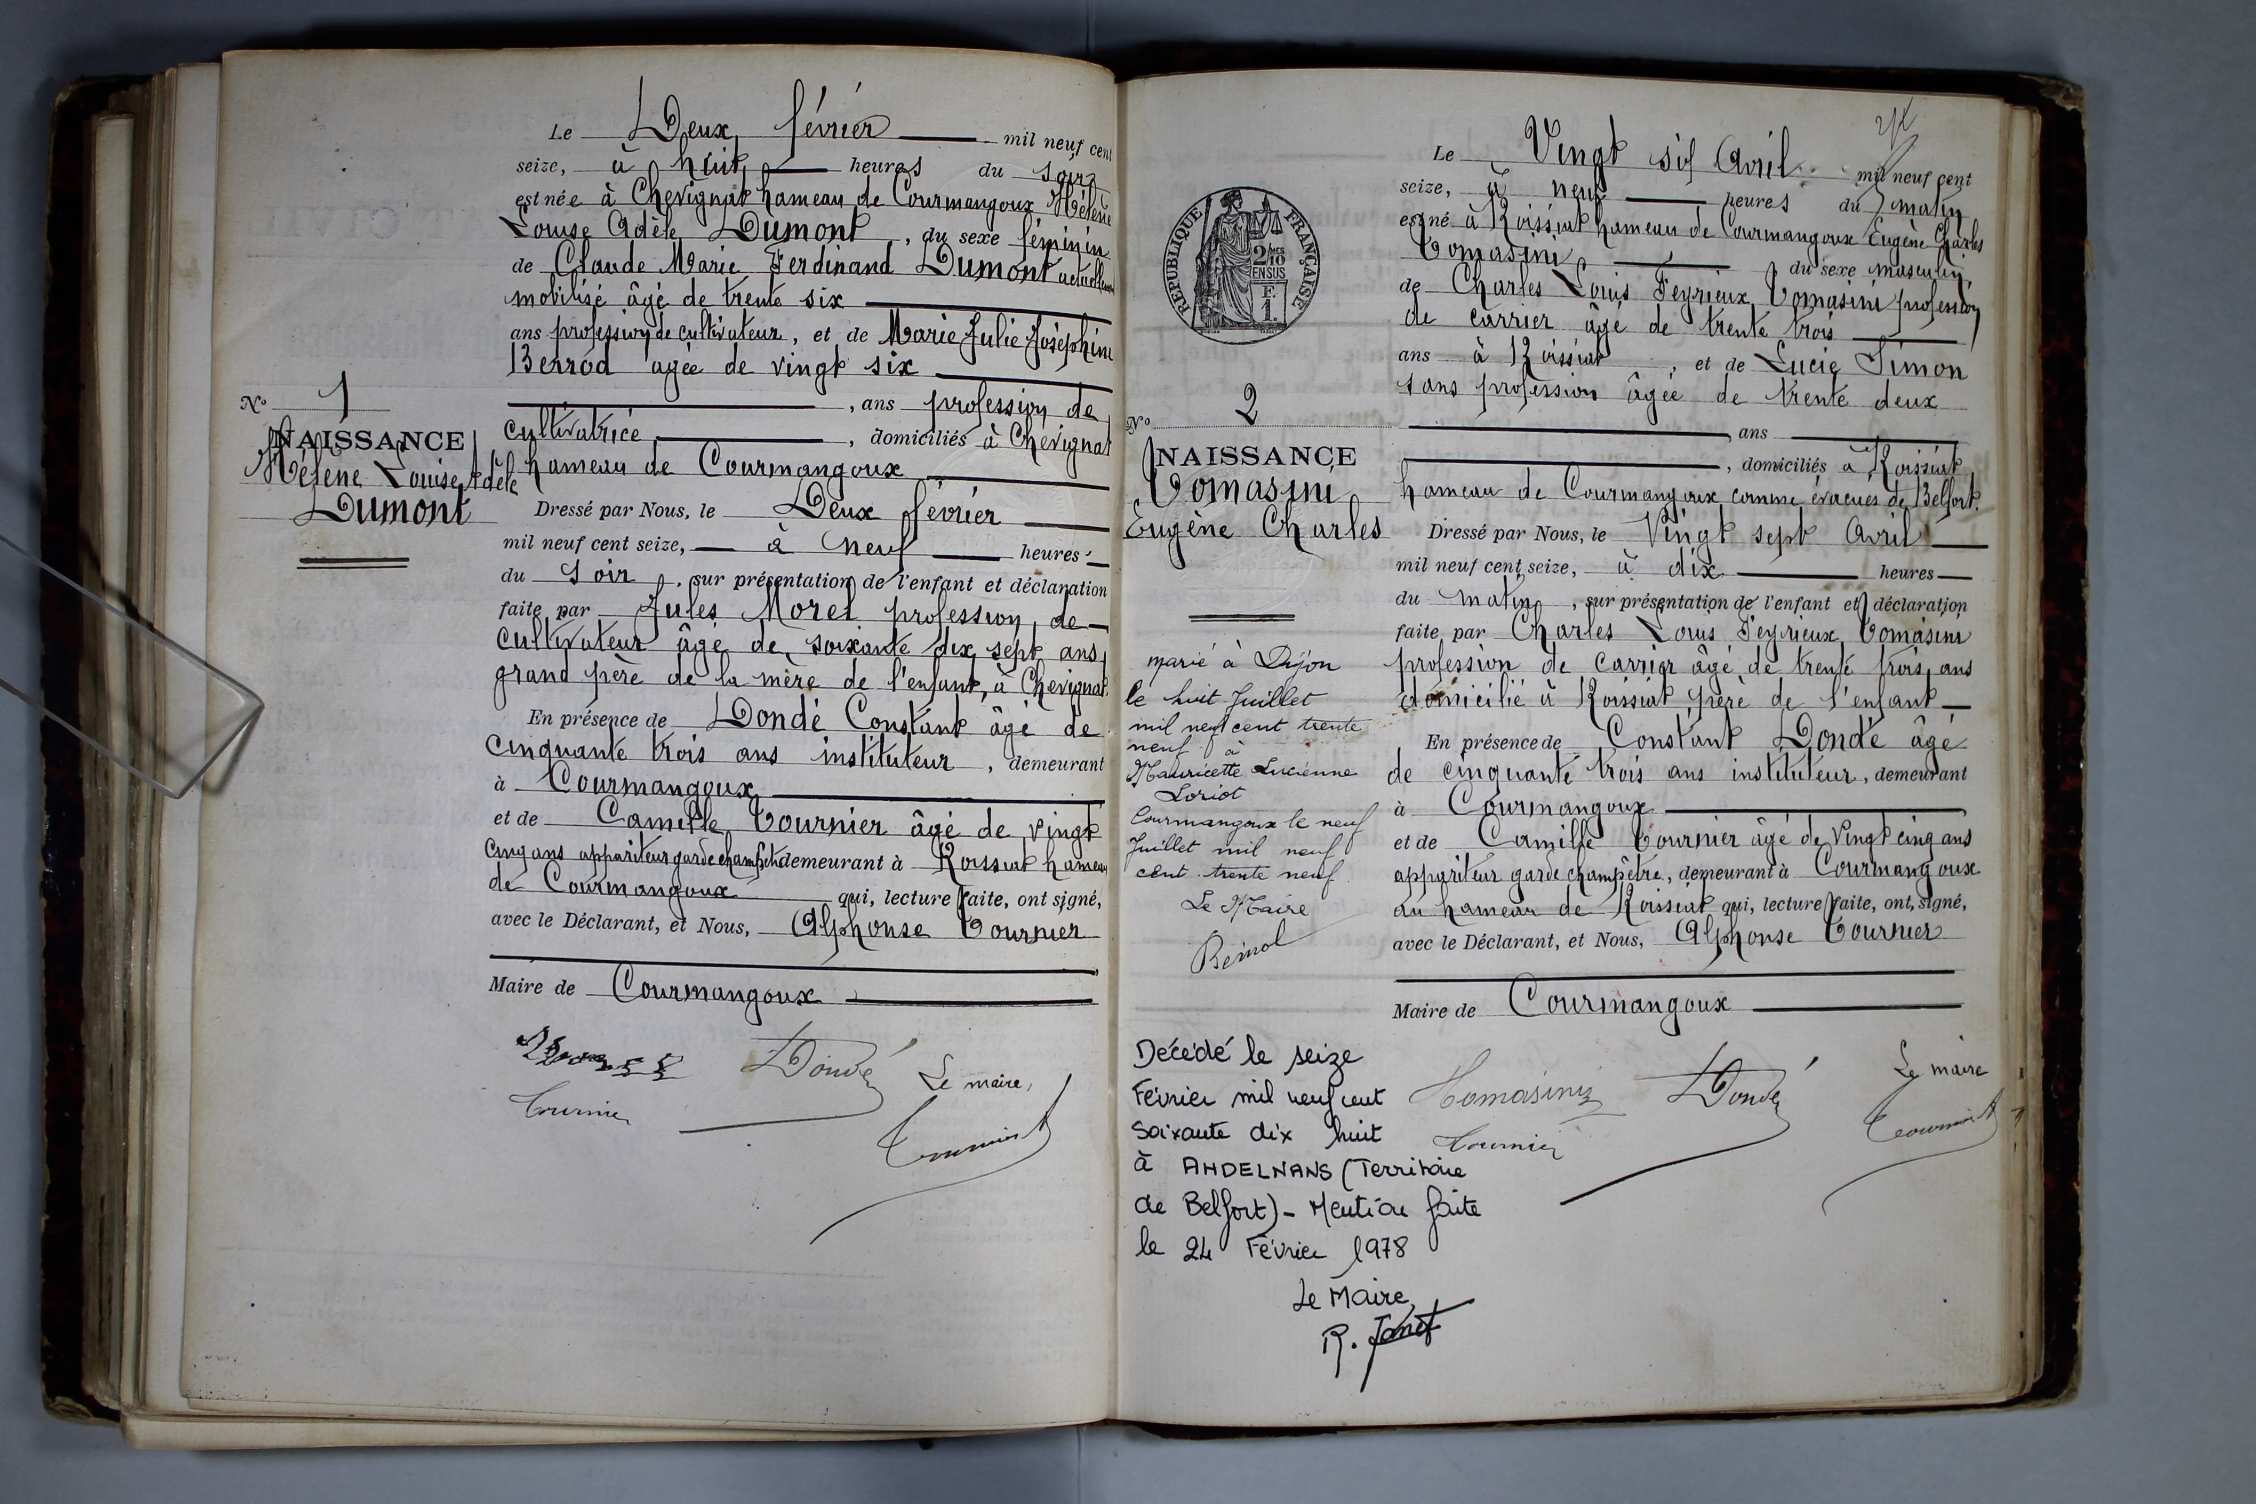 Le Deux février mil neuf cent
seize, à huit heures du soir
est née à Chevignat hameau de Courmangoux, Hélène
Louise Adèle Dumont, du sexe féminin
de Claude Marie Ferdinand Dumont actuellement
mobilisé âgé de trente six
ans profession de cultivateur, et de Marie Julie Joséphine
Berrod âgée de vingt six
, ans profession de
cultivatrice, domiciliés à Chevignat
hameau de Courmangoux
Dressé par Nous, le Deux février
mil neuf cent seize, à neuf heures
du soir, sur présentation de l'enfant et déclaration
faite par Jules Morel profession de
cultivateur âgé de soixante dix sept ans,
grand père de la mère de l'enfant, à Chevignat.
En présence de Dondé Constant âgé de
cinquante trois ans instituteur, demeurant
à Courmangoux
et de Camille Tournier âgé de vingt
cinq ans appariteur garde champêt. demeurant à Roissiat hameau
de Courmangoux qui, lecture faite, ont signé,
avec le Déclarant, et Nous, Alphonse Tournier
Maire de Courmangoux
Dondé
Le maire,
Tournier
Tournier
No 1
NAISSANCE
Hélène Louise Adèle
Dumont
RÉPUBLIQUE FRANÇAISE
2/10
EN SUS
F.
1.
No 2
NAISSANCE
Tomasini
Eugène Charles
marié à Dijon
le huit Juillet
mil neuf cent trente
neuf à
Mauricette Lucienne
Loriot
Courmangoux le neuf
Juillet mil neuf
cent trente neuf
Le Maire
Décédé le seize
Février mil neuf cent
soixante dix huit
à ANDELNANS (Territoire
de Belfort) - Mention faite
le 24 Février 1978
Le Maire,
Le Vingt six Avril mil neuf cent
seize, à neuf heures du matin
est né à Roissiat hameau de Courmangoux Eugène Charles
Tomasini du sexe masculin,
de Charles Louis Feyrieux Tomasini profession
de carrier âgé de trente trois
ans à Roissiat, et de Lucie Simon
sans profession âgée de trente deux
, ans
, domiciliés à Roissiat
hameau de Courmangoux comme évacués de Belfort.
Dressé par Nous, le Vingt sept Avril
mil neuf cent seize, à dix heures
du matin, sur présentation de l'enfant et déclaration
faite par Charles Louis Feyrieux Tomasini
profession de carrier âgé de trente trois ans
domicilié à Roissiat père de l'enfant
En présence de Constant Dondé âgé
de cinquante trois ans instituteur, demeurant
à Courmangoux
et de Camille Tournier âgé de vingt cinq ans
appariteur garde champêtre, demeurant à Courmangoux
au hameau de Roissiat qui, lecture faite, ont signé,
avec le Déclarant, et Nous, Alphonse Tournier
Maire de Courmangoux
Tomasini
Dondé
Le maire
Tournier
Tournier